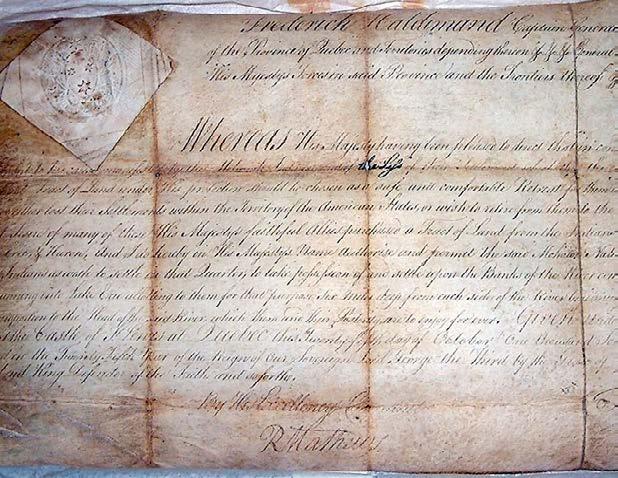 Frederick Haldimand Captain General
of the Province of Quebec and Territories depending thereon &c &c &c General
His Majestys Forces in said Province and the Frontiers thereof
Whereas His Majesty having been pleased to direct that in con
Mohawk Indians of their Settlement
Tract of Land under His protection should be chosen as a safe and comfortable Retreat for them
either lost their Settlements within the Territory of the American States, or wish to retire from them to the
of many of these His Majestys faithful Allies purchased a Tract of Land from the Indians
Huron, And I do hereby in His Majestys Name authorise and permit the said Mohawk Nat
Indians as wish to settle in that Quarter to take possession of and settle upon the Banks of the River
running into Lake Erie allotting to them for that purpose Six Miles deep from each side of the River
to the Head of the said River which them and their Posterity are to enjoy for ever. Given
at the Castle of St Lewis at Quebec this Twenty fifth day of October One thousand
in the Twenty Fifth Year of the Reign of Our Sovereign Lord George The Third by the Grace of
and King Defender of the Faith and so forth.
By His Excellency's Command
R Mathews